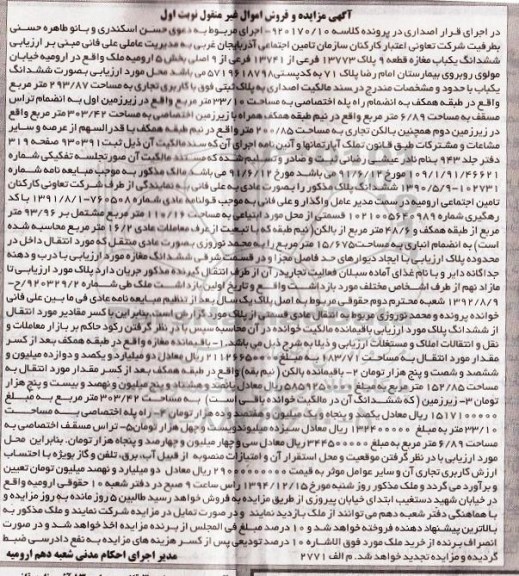 آگهی مزایده و فروش اموال غیر منقول نوبت اول
در اجرای قرار اصداری در پرونده کلاسه ۹۲۰۱۷۰/۱۰- اجرای مربوط به دعوی حسن اسکندری و بانو طاهره حسنی
بطرفیت شرکت تعاونی اعتبار کارکنان سازمان تامین اجتماعی آذربایجان غربی به مدیریت عاملی علی فانی مبنی بر ارزیابی
ششدانگ یکباب مغازه قطعه ۹ پلاک ۱۳۷۷۳ فرعی از ۱۳۷۴۱ فرعی از ۹ اصلی بخش ۵ ارومیه ملک واقع در ارومیه خیابان
مولوی روبروی بیمارستان امام رضا پلاک ۷۱ به کدپستی ۵۷۱۹۶۱۸۷۹۸ می باشد محل مورد ارزیابی بصورت ششدانگ
یکباب با حدود و مشخصات مندرج در سند مالکیت اصداری به پلاک ثبتی فوق با کاربری تجاری به مساحت ۲۹۳/۸۷ متر مربع
واقع در طبقه همکف به انضمام راه پله اختصاصی به مساحت ۳۳/۱۰ متر مربع واقع در زیرزمین اول به انضمام تراس
مسقف به مساحت ۶/۸۹ متر مربع واقع در نیم طبقه همکف همراه با زیرزمین اختصاصی به مساحت ۳۰۳/۴۲ متر مربع واقع
در زیرزمین دوم همچنین بالکن تجاری به مساحت ۲۰۰/۸۵ متر مربع واقع در نیم طبقه همکف با قدرالسهم از عرصه و سایر
مشاعات و مشترکات طبق قانون تملک آپارتمانها و آئین نامه اجرای آن که سند مالکیت آن ذیل ثبت ۹۳۰۳۹۱ صفحه ۳۱۹
دفتر جلد ۹۴۳ بنام نادر عبدی رضائی ثبت و صادر و تسلیم شده که مستند مالکیت آن صورتجلسه تفکیکی شماره
می باشد مالک مذکور به موجب مبایعه نامه شماره
ششدانگ پلاک مذکور را بصورت عادی به علی فانی به نمایندگی از طرف شرکت تعاونی کارکنان
تامین اجتماعی ارومیه در سمت مدیر عامل واگذار و علی فانی به موجب قولنامه عادی شماره
قسمتی از محل مورد ابتیاعی به مساحت ۱۱۰/۶۶ متر مربع مشتمل بر ۹۳/۹۶ متر
مربع از طبقه همکف و ۴۸/۶ متر مربع از بالکن( نیم طبقه که با تبعیت از عرف معاملات عادی ۱۶/۲ متر مربع محاسبه شده
است) به انضمام انباری به مساحت ۱۵/۶۷۵ متر مربع را به محمد نوروزی بصورت عادی منتقل که مورد انتقال داخل در
محدوده پلاک ارزیابی با ایجاد دیوارهای حد فاصل مجزا و در قسمت شرقی ششدانگ مغازه مورد ارزیابی با درب و دهنه
جداگانه دایر و با نام غذای آماده سبلان فعالیت تجاری در آن از طرف انتقال گیرنده مذکور جریان دارد پلاک مورد ارزیابی تا
مازاد نهم از طرف اشخاص مختلف مورد بازداشت واقع و تاریخ اولین بازداشت ملک طی شماره
۱۳۹۲/۸/۹ شعبه محترم دوم حقوقی مربوط به اصل پلاک یک سال بعد از تنظیم مبایعه نامه عادی فی ما بین علی فانی
خوانده پرونده و محمد نوروزی مربوط به انتقال عادی قسمتی از پلاک مورد گزارش است بنابراین با کسر مقادیر مورد انتقال
از ششدانگ پلاک مورد ارزیابی باقیمانده مالکیت خوانده در آن محاسبه سپس با در نظر گرفتن رکود حاکم بر بازار معاملات و
نقل و انتقالات املاک و مستغلات ارزیابی و ذیلا به شرح ذیل می باشد. ۱- باقیمانده مغازه واقع در طبقه همکف بعد از کسر
مقدار مورد انتقال به مساحت ۱۸۳/۷۱ به مبلغ ۲۱۱۲۶۶۵۰۰۰۰ ریال معادل دو میلیارد و یکصد و دوازده میلیون و
ششصد و شصت و پنج هزار تومان ۲- باقیمانده بالکن ( نیم بقه) واقع در طبقه همکف بعد از کسر مقدار مورد انتقال به
مساحت ۱۵۲/۸۵ متر مربع به مبلغ ۵۸۵۹۲۵۰۰۰۰ ریال معادل پانصد و هشتاد و پنج میلیون و نهصد و بیست و پنج هزار
تومان ۳- زیرزمین ( که ششدانگ آن در مالکیت خوانده باقی است) به مساحت ۳۰۳/۴۲ متر مربع به مبلغ
۱۵۱۷۱۰۰۰۰۰ ریال معادل یکصد و پنجاه و یک میلیون و هفتصد و ده هزار تومان ۴- راه پله اختصاصی به مساحت
۳۳/۱۰ متر به مبلغ ۱۳۲۴۰۰۰۰۰ ریال معادل سیزده میلیون دویست و چهل هزار تومان ۵- تراس مسقف اختصاصی به
مساحت ۶/۸۹ متر مربع به مبلغ ۳۴۴۵۰۰۰۰۰ ریال معادل سی و چهار میلیون و چهارصد و پنجاه هزار تومان. بنابراین محل
مورد ارزیابی با در نظر گرفتن موقعیت و محل استقرار آن و امتیازات منصوبه از قبیل آب، برق، تلفن و گاز بویژه با احتساب
ارزش کاربری تجاری آن و سایر عوامل موثر به قیمت ۲۹۰۰۰۰۰۰۰۰۰ ریال معادل دو میلیارد و نهصد میلیون تومان تعیین
و برآورد می گردد و ملک مذکور روز شنبه مورخ ۱۳۹۴/۱۲/۱۵ راس ساعت ۹ صبح در دفتر شعبه ۱۰ حقوقی ارومیه واقع
در خیابان شهید دستغیب ابتدای خیابان پیروزی از طریق مزایده به فروش خواهد رسید طالبین ۵ روز مانده به روز مزایده و
با هماهنگی دفتر شعبه دهم می توانند از ملک بازدید نمایند و در صورت تمایل در مزایده شرکت نمایند و ملک مذکور به
بالاترین پیشنهاد دهنده فروخته خواهد شد و ۱۰ درصد مبلغ فی المجلس از برنده مزایده اخذ خواهد شد و در صورت
انصراف برنده از خرید ملک مورد فوق الاشاره ۱۰ درصد تودیعی پس از کسر هزینه های مزایده به نفع دادرسی ضبط
گردیده و مزایده تجدید خواهد شد. م الف ۲۷۷۱
مدیر اجرای احکام مدنی شعبه دهم ارومیه